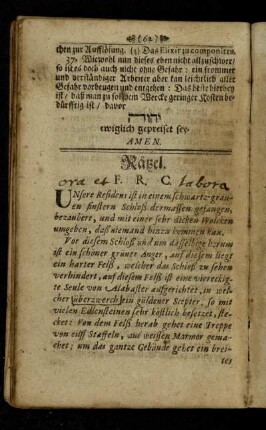 (62)
chen zur Aufflösung. (3) Das Elixir zu componiren.
37. Wiewohl nun dieses eben nicht allzuschwer/
so ist es doch auch nicht ohne Gefahr: ein frommer
und verständiger Arbeiter aber kan leichtlich aller
Gefahr vorbeugen und entgehen: Das beste hierbey
ist/ daß man zu solchem Wercke geringer Kosten be-
dürfftig ist/ davor
יהוה
ewiglich gepreiset sey.
AMEN.
Rätzel.
ora et F. R. C. labora
UNsere Residens ist in einem schwartz-grau-
en finstern Schloß dermassen gefangen,
bezaubert, und mit einer sehr dicken Wolcken
umgeben, daß niemand hinzu kommen kan.
Vor diesem Schloß und um dasselbige herum
ist ein schöner grüner Anger, auf diesem liegt
ein harter Felß, welcher das Schloß zu sehen
verhindert, auf diesem Felß ist eine viereckig-
te Seule von Alabaster auffgerichtet, in wel-
cher überzwerch ein güldener Scepter, so mit
vielen Edlensteinen sehr köstlich besetzet, ste-
cket: Von dem Felß herab gehet eine Treppe
von eilff Staffeln, aus weissen Marmor gema-
chet; um das gantze Gebäude gehet ein brei-
tes